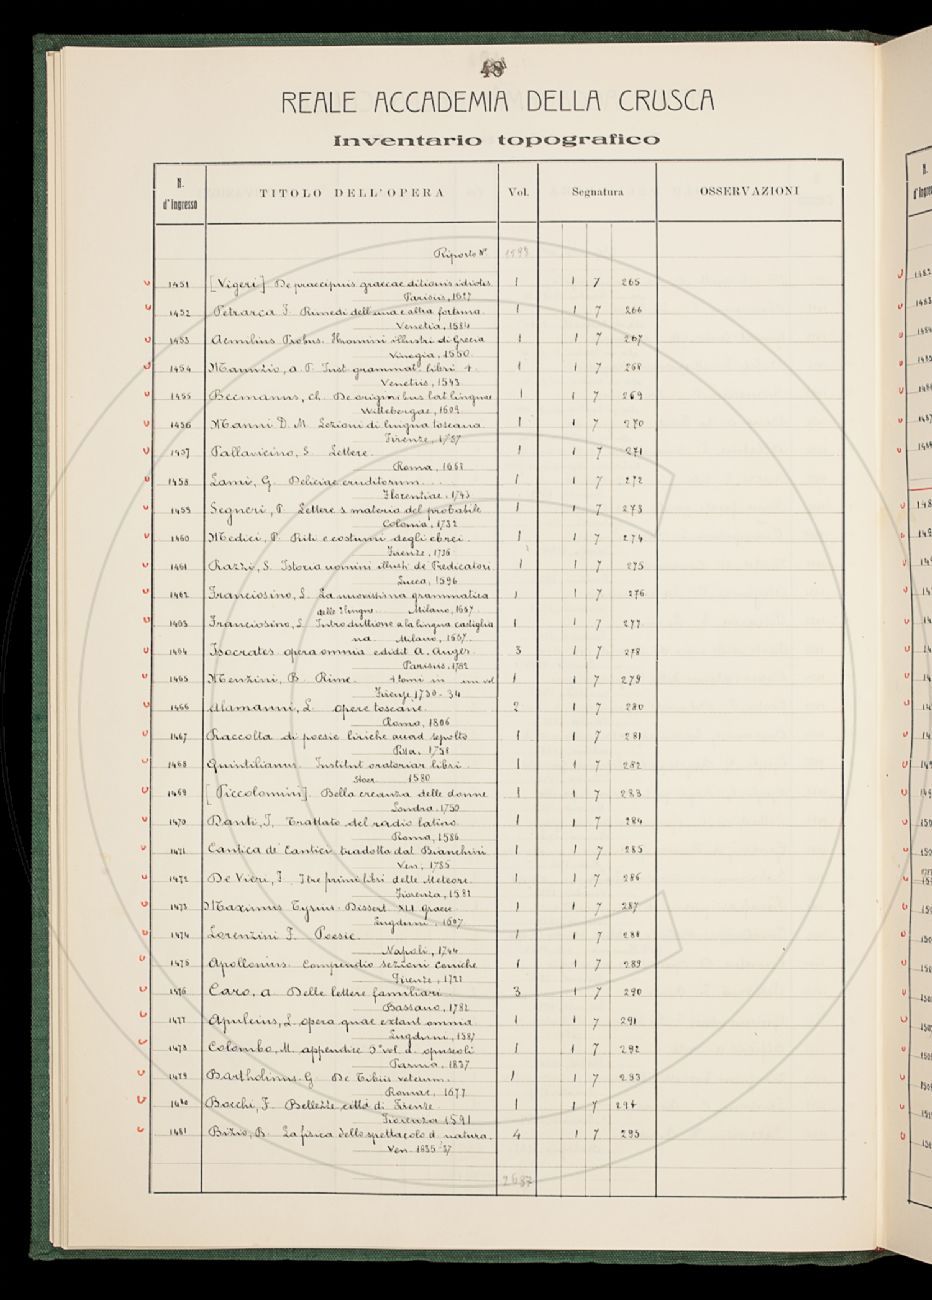 48
REALE ACCADEMIA DELLA CRUSCA
Inventario topografico
N. d'Ingresso TITOLO DELL'OPERA Vol. Segnatura OSSERVAZIONI
Riporto N°
1451 [Vigeri] De praecipuis graecae ditionis idiotis 1 1 7 265
Parisiis, 1627
1452 Petrarca F. Rimedi dell'una e altra fortuna. 1 1 7 266
Venetia, 1584
1453 Aemilius Probus. Huomini illustri di Grecia 1 1 7 267
Vinegia, 1550.
1454 Manuzio, A. P. Inst. grammat. libri 4. 1 1 7 268
Venetiis, 1543
1455 Becmanus, Ch. De originibus lat linguae 1 1 7 269
Wittebergae, 1609
1456 Manni D. M. Lezioni di lingua toscana. 1 1 7 270
Firenze, 1737
1457 Pallavicino, S. Lettere. 1 1 7 271
Roma, 1668
1458 Lami, G. Deliciae eruditorum.... 1 1 7 272
Florentiae, 1743
1459 Segneri, P. Lettere s materia del probabile 1 1 7 273
Colonia, 1732
1460 Medici, P. Riti e costumi degli ebrei. 1 1 7 274
Firenze, 1736
1461 Razzi, S. Istoria uomini illustri de' Predicatori. 1 1 7 275
Lucca, 1596
1462 Franciosino, L. La nuovissima grammatica 1 1 7 276
delle lingue. Milano, 1687.
1463 Franciosino, L. Introduttione a la lingua castiglia 1 1 7 277
na. Milano, 1687.
1464 Isocrates. opera omnia edidit A. Auger. 3 1 7 278
Parisiis, 1782
1465 Menzini, B. Rime. 4 tomi in un vol 1 1 7 279
Firenze, 1730-34
1466 Alamanni, L. opere toscane. 2 1 7 280
Roma, 1806
1467 Raccolta di poesie liriche accad sepolta 1 1 7 281
Pisa.
1468 Quintilianus. Institut oratoriar libri. 1 1 7 282
1580
1469 [Piccolomini]. Bella creanza delle donne 1 1 7 283
Londra, 1750
1470 Danti, I, Trattato del radio latino. 1 1 7 284
Roma, 1586
1471 Cantica de' Cantici tradotta dal Bianchini 1 1 7 285
Ven, 1735
1472 De Vieri, F. I tre primi libri delle Meteore. 1 1 7 286
Fiorenza, 1582
1473 Maximus Tyrius. Dissert XLI graece. 1 1 7 287
Lugduni, 1607
1474 Lorenzini F. Poesie. 1 1 7 288
Napoli, 1744
1475 Apollonius. Compendio sezioni coniche 1 1 7 289
Firenze, 1722
1476 Caro, A. Delle lettere familiari. 3 1 7 290
Bassano, 1782
1477 Apuleius, L. opera quae extant omnia. 1 1 7 291
Lugduni, 1587
1478 Colombo, M. appendice 3° vol d. opuscoli 1 1 7 292
Parma, 1837
1479 Bartholinus. G. De Tibiis veterum. 1 1 7 293
Romae, 1677
1480 Bocchi, F. Bellezze città di Firenze. 1 1 7 294
Fiorenza 1591
1481 Bizio, B. La fisica dello spettacolo d. natura. 4 1 7 295
Ven. 1835-37
2687